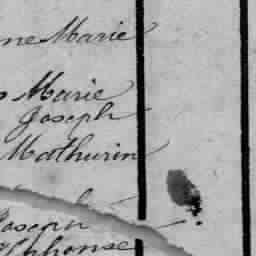 ne Marie
Marie
Joseph
Mathurin
Joseph
Alphonse